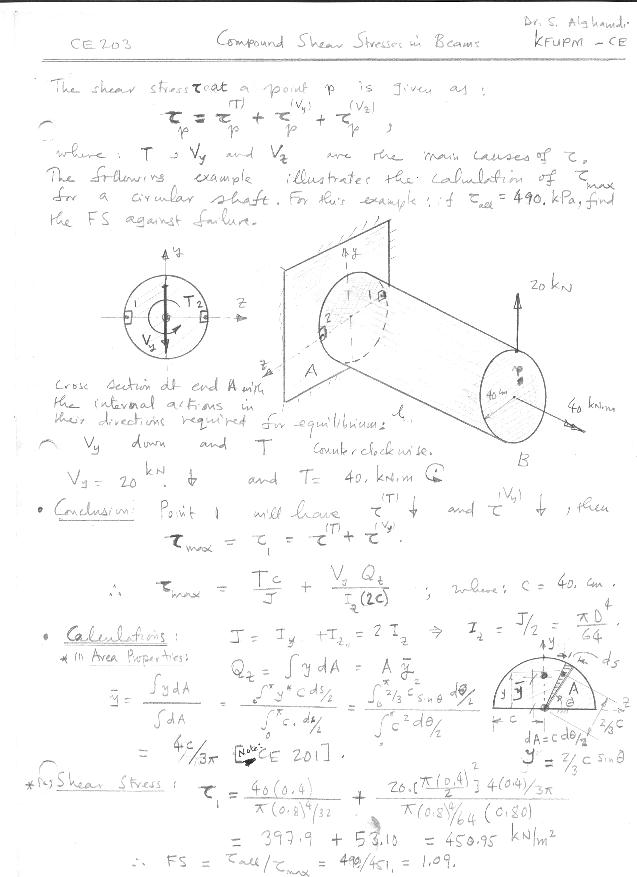 Dr. S. Alghamdi
CE 203 Compound Shear Stresses in Beams KFUPM - CE
The shear stress τ at a point p is given as :
τp = τp(T) + τp(Vy) + τp(Vz) ,
where : T , Vy and Vz are the main causes of τ.
The following example illustrates the calculation of τmax
for a circular shaft. For this example : if τall = 490. kPa, find
the FS against failure.
y
z
1
2
T
Vy
y
T
1
2
z
A
20 kN
P
40 cm
40 kN.m
B
Cross section at end A with
the internal actions in
their directions required for equilibrium:
Vy down and T counterclockwise.
Vy = 20 kN ↓ and T = 40. kN.m
• Conclusion: Point 1 will have τ(T) ↓ and τ(Vy) ↓ , then
τmax = τ1 = τ(T) + τ(Vy).
∴ τmax = Tc/J + Vy Qz / Iz (2c) ; where: c = 40. cm.
• Calculations : J = Iy + Iz = 2 Iz ⇒ Iz = J/2 = πD⁴/64 .
* (1) Area Properties: Qz = ∫ y dA = A ȳ
ȳ = ∫ydA / ∫dA = ∫₀^π y* c ds/2 / ∫₀^π c. ds/2 = ∫₀^π 2/3 c sinθ c² dθ/2 / ∫₀^π c² dθ/2
= 4c/3π [Note: CE 201].
y
ds
y
ȳ
A
θ
z
c
2/3 c
dA = c dθ/2
y = 2/3 c sinθ
* (2) Shear Stress : τ1 = 40 (0.4) / π(0.8)⁴/32 + 20.[π(0.4)²/2] 4(0.4)/3π / π(0.8)⁴/64 (0.80)
= 397.9 + 53.10 = 450.95 kN/m²
∴ FS = τall / τmax = 490/451. = 1.09.